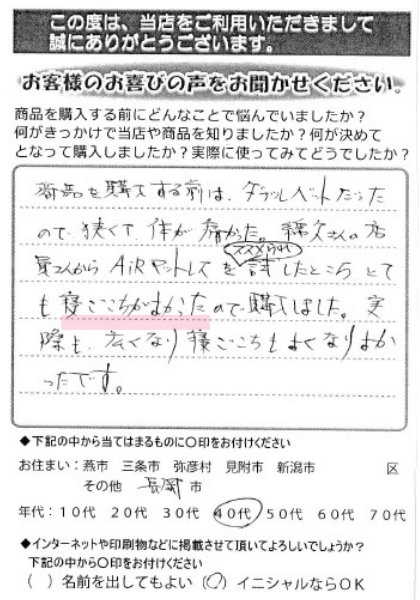 この度は、当店をご利用いただきまして
誠にありがとうございます。
お客様のお喜びの声をお聞かせください。
商品を購入する前にどんなことで悩んでいましたか？
何がきっかけで当店や商品を知りましたか？何が決めて
となって購入しましたか？実際に使ってみてどうでしたか？
商品を購入する前は、ダブルベットだった
ので狭くて、体が痛かった。綿文さんの店
員さんから AiRマットレスを ススメられ 試したところ とて
も寝ごこちがよかったので購入しました。実
際も、広くなり寝ごこちもよくなりよか
ったです。
◆下記の中から当てはまるものに〇印をお付けください
お住まい：燕市　三条市　弥彦村　見附市　新潟市　区
その他　長岡　市
年代：１０代　２０代　３０代　４０代　５０代　６０代　７０代
◆インターネットや印刷物などに掲載させて頂いてよろしいでしょうか？
下記の中から〇印をお付けください
（　）名前を出してもよい（〇）イニシャルならＯＫ